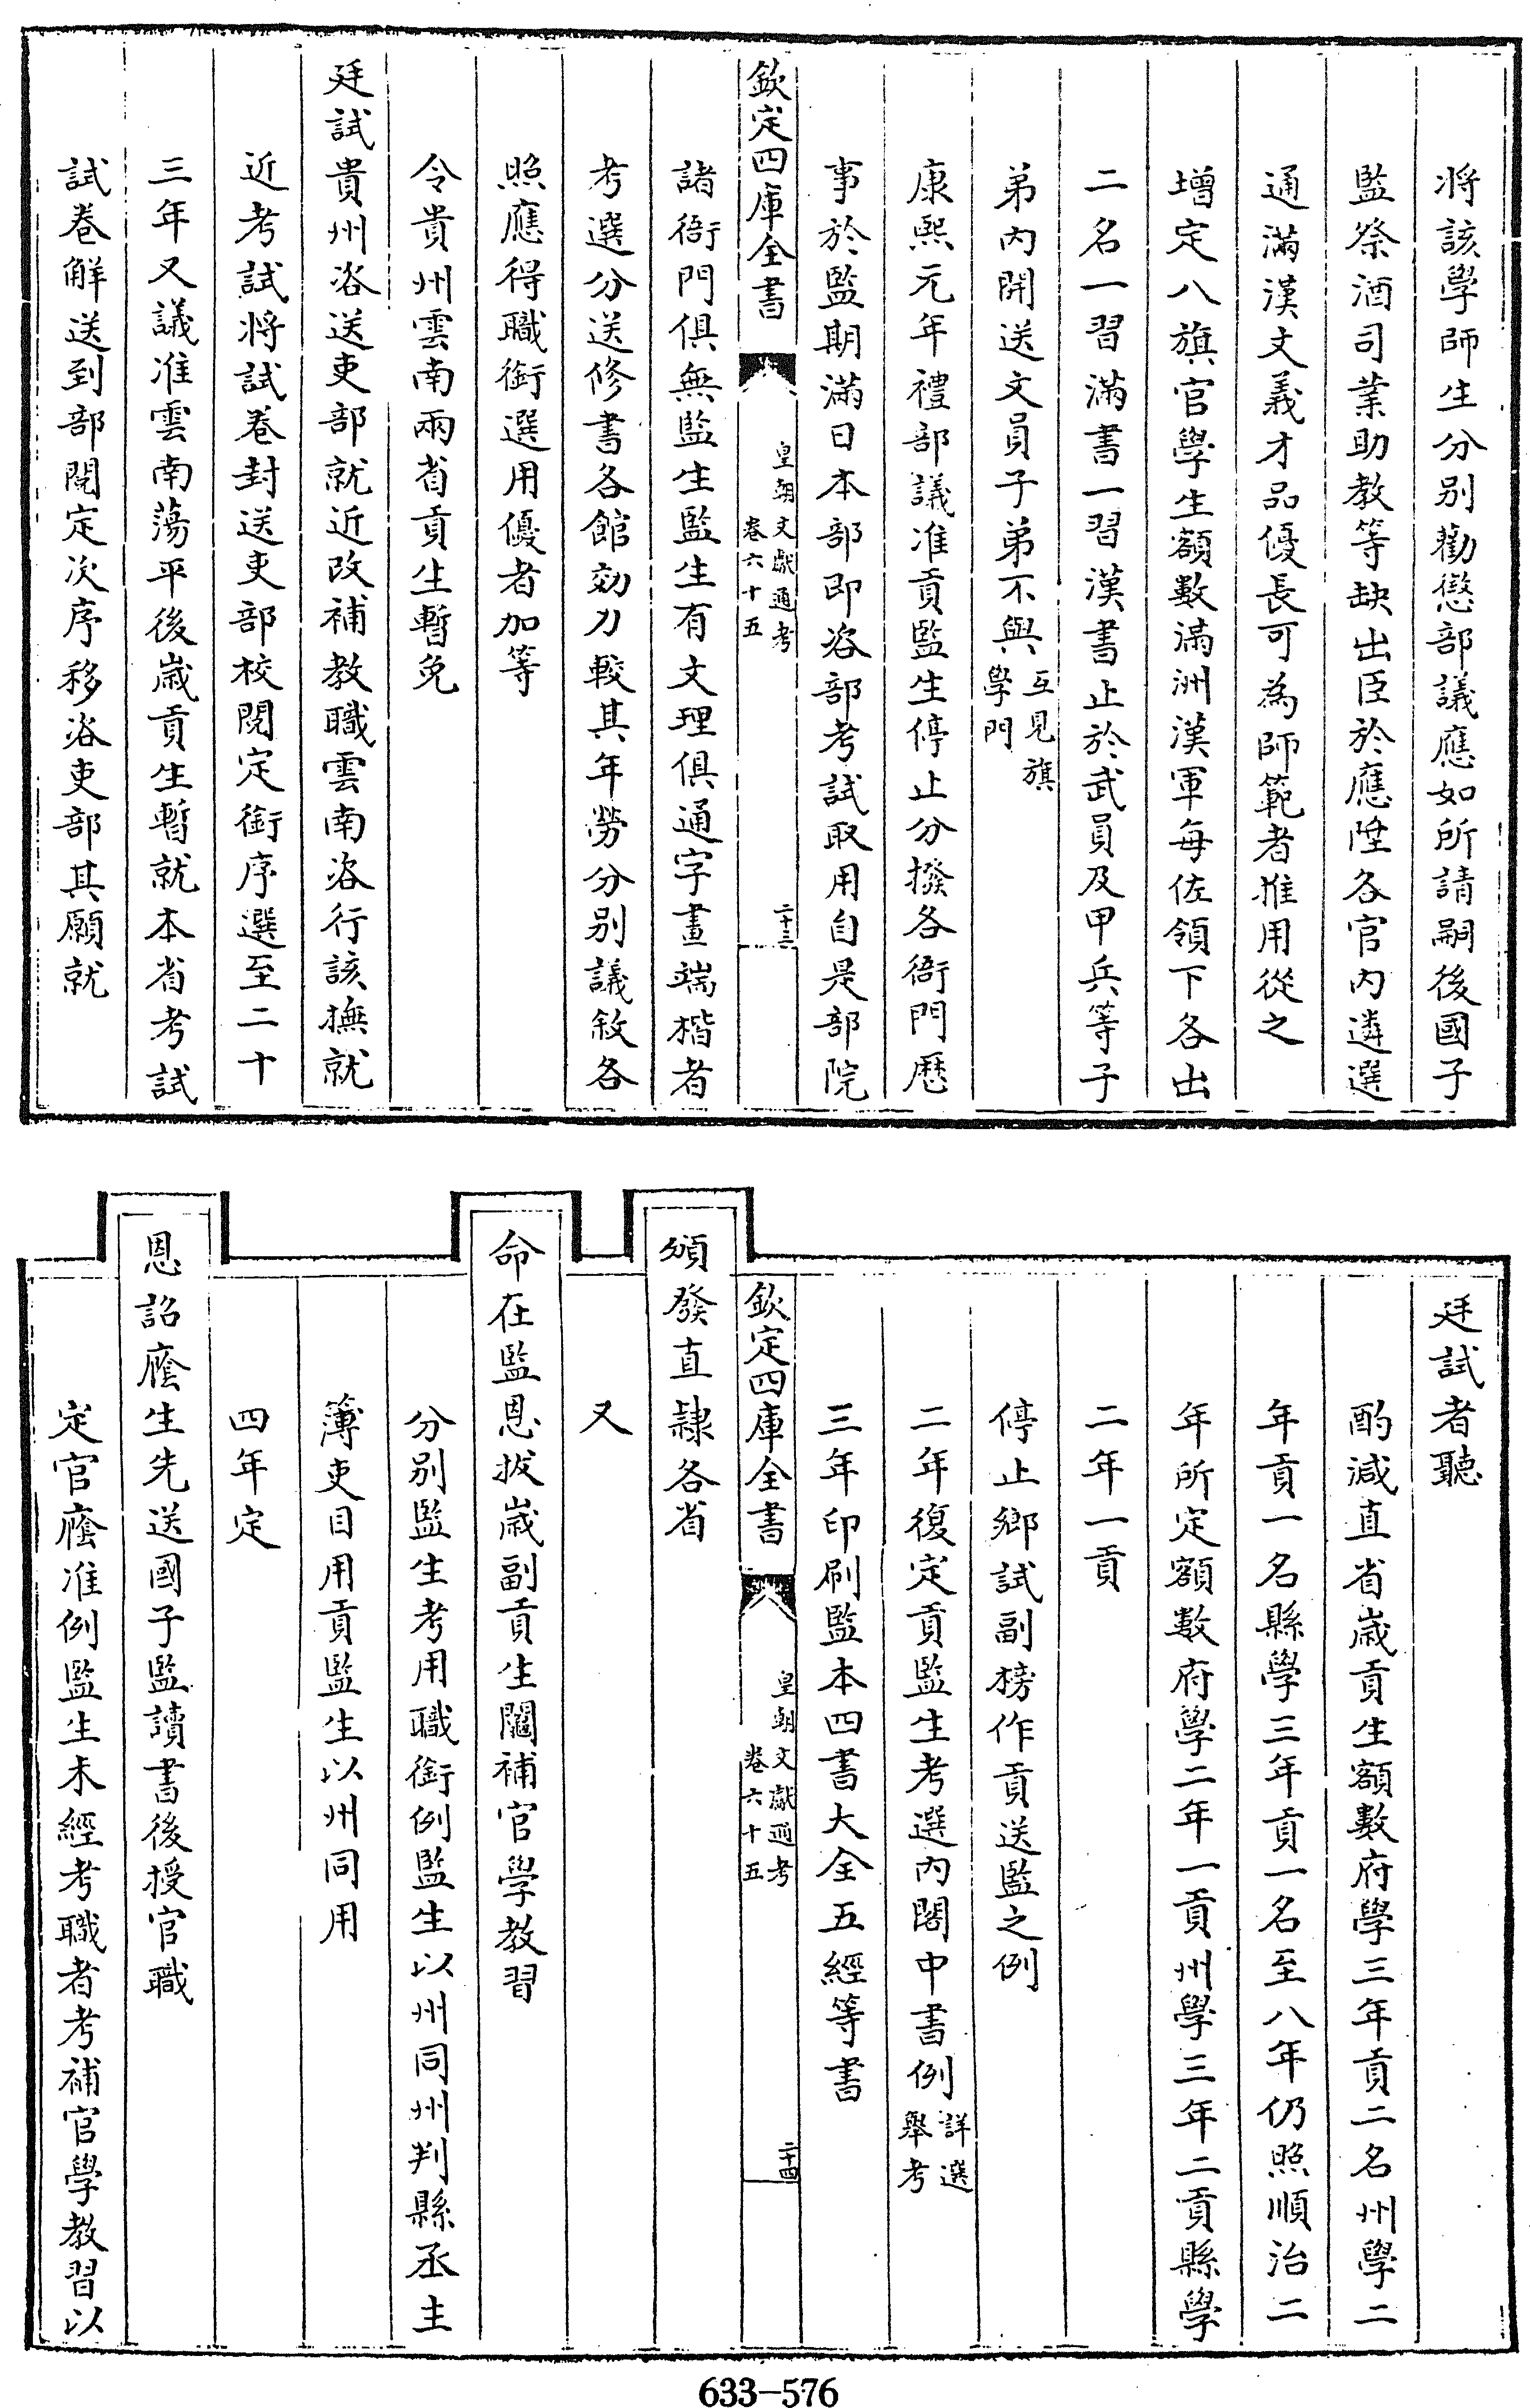 將該學師生分别勸懲部議應如所請嗣後國子
監祭酒司業助教等缺出臣於應陞各官内遴選
通滿漢文義才品優長可為師範者推用從之
增定八旗官學生額數滿洲漢軍每佐領下各出
二名一習滿書一習漢書止於武員及甲兵等子
弟内開送文員子弟不與互見旗學門
康熙元年禮部議准貢監生停止分撥各衙門歴
事於監期滿日本部即咨部考試取用自是部院
欽定四庫全書
皇朝文獻通考
卷六十五
二十三
諸衙門俱無監生監生有文理俱通字畫端楷者
考選分送修書各館効力較其年勞分别議敘各
照應得職銜選用優者加等
令貴州雲南兩省貢生暫免
廷試貴州咨送吏部就近改補教職雲南咨行該撫就
近考試將試卷封送吏部校閲定銜序選至二十
三年又議准雲南蕩平後歲貢生暫就本省考試
試卷解送到部閲定次序移咨吏部其願就
廷試者聽
酌減直省歲貢生額數府學三年貢二名州學二
年貢一名縣學三年貢一名至八年仍照順治二
年所定額數府學二年一貢州學三年二貢縣學
二年一貢
停止鄉試副榜作貢送監之例
二年復定貢監生考選内閣中書例詳選舉考
三年印刷監本四書大全五經等書
欽定四庫全書
皇朝文獻通考
卷六十五
二十四
頒發直隸各省
又
命在監恩拔歲副貢生闗補官學教習
分别監生考用職銜例監生以州同州判縣丞主
簿吏目用貢監生以州同用
四年定
恩詔廕生先送國子監讀書後授官職
定官廕准例監生未經考職者考補官學教習以
633-576